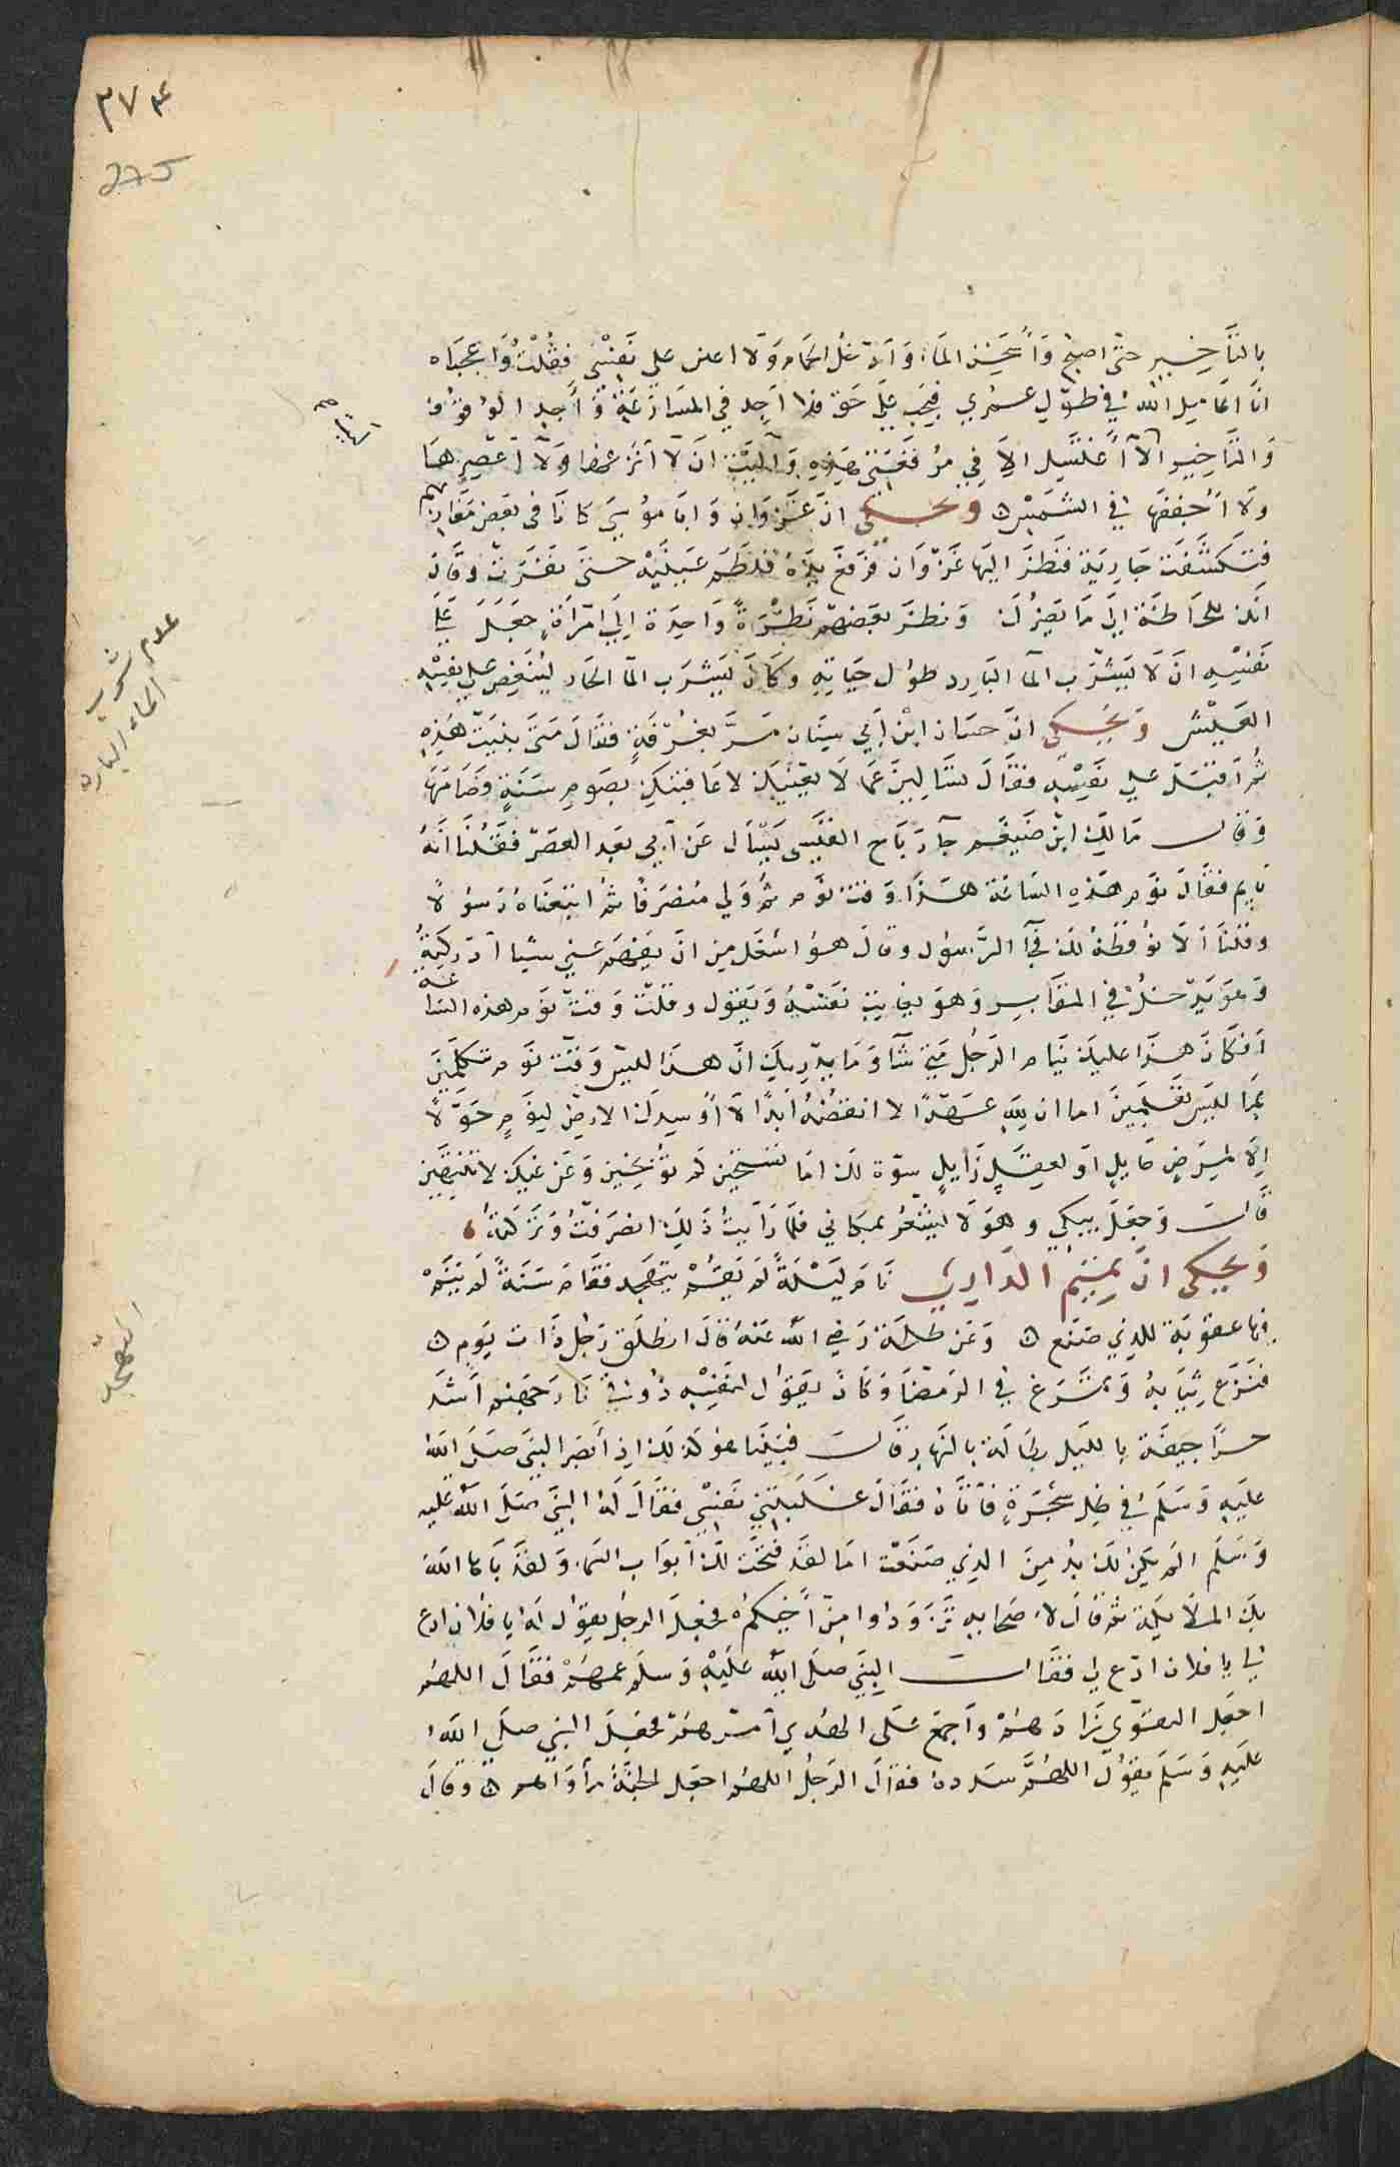 ٣٧٤
275
بالتأخير حتى اصبح وأسخن الماء وادخل الحمام ولا اعن على نفسي فقلت واعجباه
انا اعامل الله في طول عمري فيجب علي حق فلا اجد في المسارعة واجد الوقوف
والتأخير آلا أغتسل الا في مرقعتي هذه وآليت ان لا انزعها ولا اعصرها
ولا أجففها في الشمس ويحكى ان غزوان وابا موسى كانا في بعض مغازيهم
فتكشفت جارية فنظر اليها غزوان فرفع يده فلطم عينيه حتى نفرت وقال
انك للحاظة الى ما يضرك ونظر بعضهم نظرة واحدة الى امرأة فجعل على
نفسه ان لا يشرب الما البارد طول حياته وكان يشرب الما الحار لينغص على نفسه
العيش ويحكى ان حسان ابن أبي سنان مر بغرفة فقال متى بنيت هذه
ثم اقبل على نفسه فقال تسالين عما لا يعنيك لاعاقبنك بصوم سنة فصامها
وقال مالك ابن ضيغم جا رباح القيسي يسأل عن أبي بعد العصر فقلنا انه
نايم فقال نوم هذه الساعة هذا وقت نوم ثم ولى منصرفا ثم اتبعناه رسولا
وقلنا ألا نوقظه لك فجآ الرسول وقال هو اشغل من ان يفهم عني شيا ادركته
وهو يدخل في المقابر وهو يعاتب نفسه ويقول وقلت وقت نوم هذه الساعة
أفكان هذا عليك ينام الرجل متى شآ وما يدريك ان هذا ليس وقت نوم تتكلمين
بما ليس تعلمين اما ان لله عهدا لا انقضه ابدا لا أوسدك الارض ليوم حولا
الا لمرض حايل او لعقل زايل سوة لك اما تستحين كم توبخين وعن غيك لا تنتهين
قال وجعل يبكي وهو لا يشعر بمكاني فلما رايت ذلك انصرفت وتركته
ويحكى ان تميم الداري نام ليلة لم يقم يتهجد فقام سنة لم ينم
فيها عقوبة للذي صنع وعن طلحة رضي الله عنه قال انطلق رجل ذات يوم
فنزع ثيابه وتمرغ في الرمضا وكان يقول لنفسه ذوقي نار جهنم اشد
حرا جيفة بالليل بطالة بالنهار قال فبينما هو كذلك اذ أبصر النبي صلى الله
عليه وسلم في ظل شجرة فأتاه فقال غلبتني نفسي فقال له النبي صلى الله عليه
وسلم الم يكن لك بد من الذي صنعت اما لقد فتحت لك أبواب السما ولقد باها الله
بك الملايكة ثم قال لاصحابه تزودوا من أخيكم فجعل الرجل يقول له يا فلان ادع
لي يا فلان ادع لي فقال النبي صلى الله عليه وسلم عمهم فقال اللهم
اجعل التقوى زادهم واجمع على الهدي امرهم فجعل النبي صلى الله
عليه وسلم يقول اللهم سدده فقال الرجل اللهم اجعل الجنة مأواهم وقال
عدم شرب
الماء البارد
التهجد